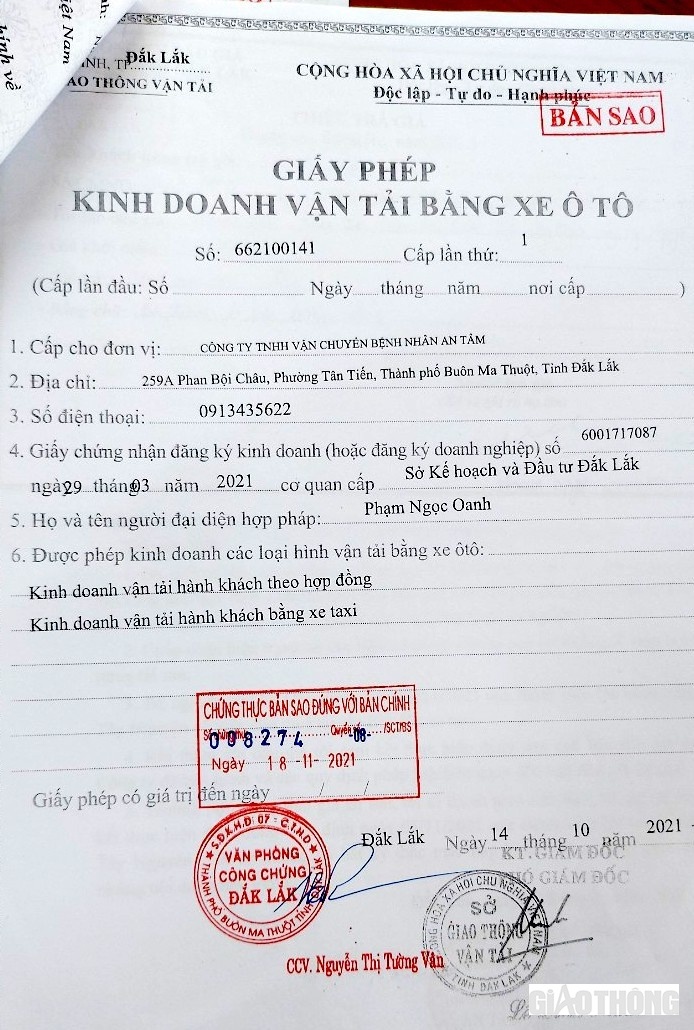 nh:
iệt Nam
ính về
ỈNH, TP Đắk Lắk
AO THÔNG VẬN TẢI
CỘNG HÒA XÃ HỘI CHỦ NGHĨA VIỆT NAM
Độc lập - Tự do - Hạnh phúc
BẢN SAO
GIẤY PHÉP
KINH DOANH VẬN TẢI BẰNG XE Ô TÔ
Số: 662100141 Cấp lần thứ: 1
(Cấp lần đầu: Số Ngày tháng năm nơi cấp )
1. Cấp cho đơn vị: CÔNG TY TNHH VẬN CHUYỂN BỆNH NHÂN AN TÂM
2. Địa chỉ: 259A Phan Bội Châu, Phường Tân Tiến, Thành phố Buôn Ma Thuột, Tỉnh Đắk Lắk
3. Số điện thoại: 0913435622
4. Giấy chứng nhận đăng ký kinh doanh (hoặc đăng ký doanh nghiệp) số 6001717087
ngày 29 tháng 03 năm 2021 cơ quan cấp Sở Kế hoạch và Đầu tư Đắk Lắk
5. Họ và tên người đại diện hợp pháp: Phạm Ngọc Oanh
6. Được phép kinh doanh các loại hình vận tải bằng xe ôtô:
Kinh doanh vận tải hành khách theo hợp đồng
Kinh doanh vận tải hành khách bằng xe taxi
CHỨNG THỰC BẢN SAO ĐÚNG VỚI BẢN CHÍNH
008274 Quyển số -08- /SCT/BS
Ngày 18-11-2021
Giấy phép có giá trị đến ngày / /
Đắk Lắk Ngày 14 tháng 10 năm 2021
KT. GIÁM ĐỐC
PHÓ GIÁM ĐỐC
S.Đ.K.H.Đ: 07 - C.T.H.D
VĂN PHÒNG
CÔNG CHỨNG
ĐẮK LẮK
THÀNH PHỐ BUÔN MA THUỘT TỈNH ĐẮK LẮK
CỘNG HÒA XÃ HỘI CHỦ NGHĨA VIỆT NAM
SỞ
GIAO THÔNG
VẬN TẢI
TỈNH ĐẮK LẮK
CCV. Nguyễn Thị Tường Vân
GIAOTHÔNG